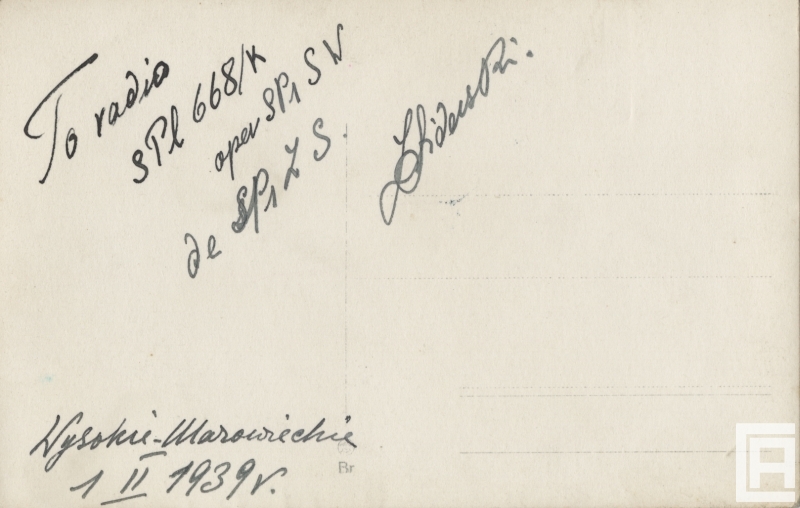 To radio
SPL 668/K
oper SP1SW
de SP1ZS.
Wysokie-Mazowieckie
1 II 1939r.
Br
CA